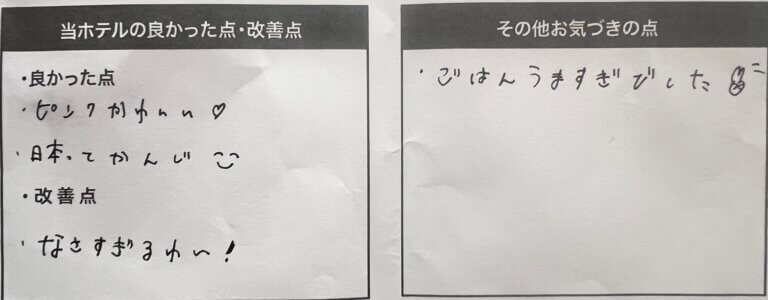 当ホテルの良かった点・改善点
・良かった点
・ピンクかわいい♡
・日本ってかんじ
・改善点
・なさすぎるわい!
その他お気づきの点
・ごはんうますぎでした